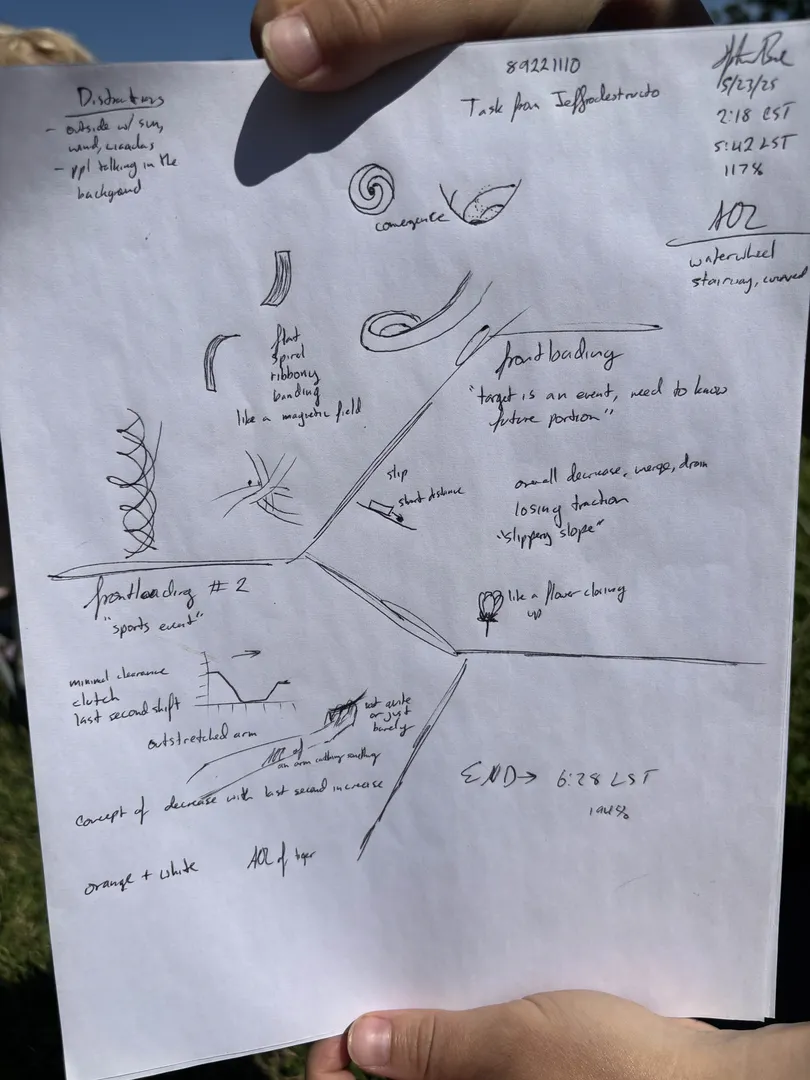 Distractions
- outside w/ sun,
wind, cicadas
- ppl talking in the
background
89221110
Task from Jeffrodestructo
5/23/25
2:18 EST
5:42 LST
117%
AOL
waterwheel
stairway, curved
convergence
flat
spiral
ribbony
banding
like a magnetic field
frontloading
"target is an event, need to know
future portion"
slip
short distance
overall decrease, merge, drain
losing traction
"slippery slope"
like a flower closing
up
frontloading #2
"sports event"
minimal clearance
clutch
last second shift
outstretched arm
not quite
or just
barely
AOL of
an arm catching something
concept of decrease with last second increase
orange + white
AOL of tiger
END → 6:28 LST